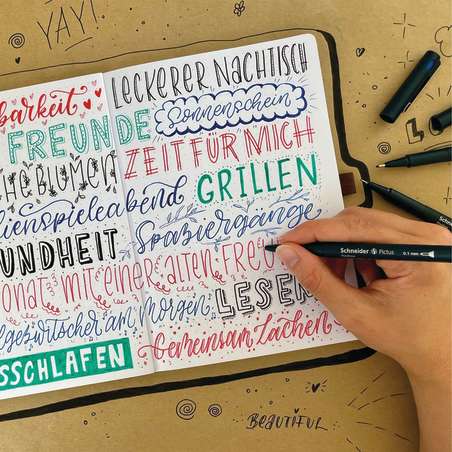 YAY!
LECKERER NACHTISCH
barkeit
Sonnenschein
FREUNDE
ZEIT FÜR MICH
BLUMEN
GRILLEN
lienspieleabend
Spaziergänge
UNDHEIT
onat mit einer alten Freun
LESEN
lgezwitscher am Morgen
Gemeinsam Lachen
SSCHLAFEN
Schneider Pictus 0.1 mm
BEAUTIFUL